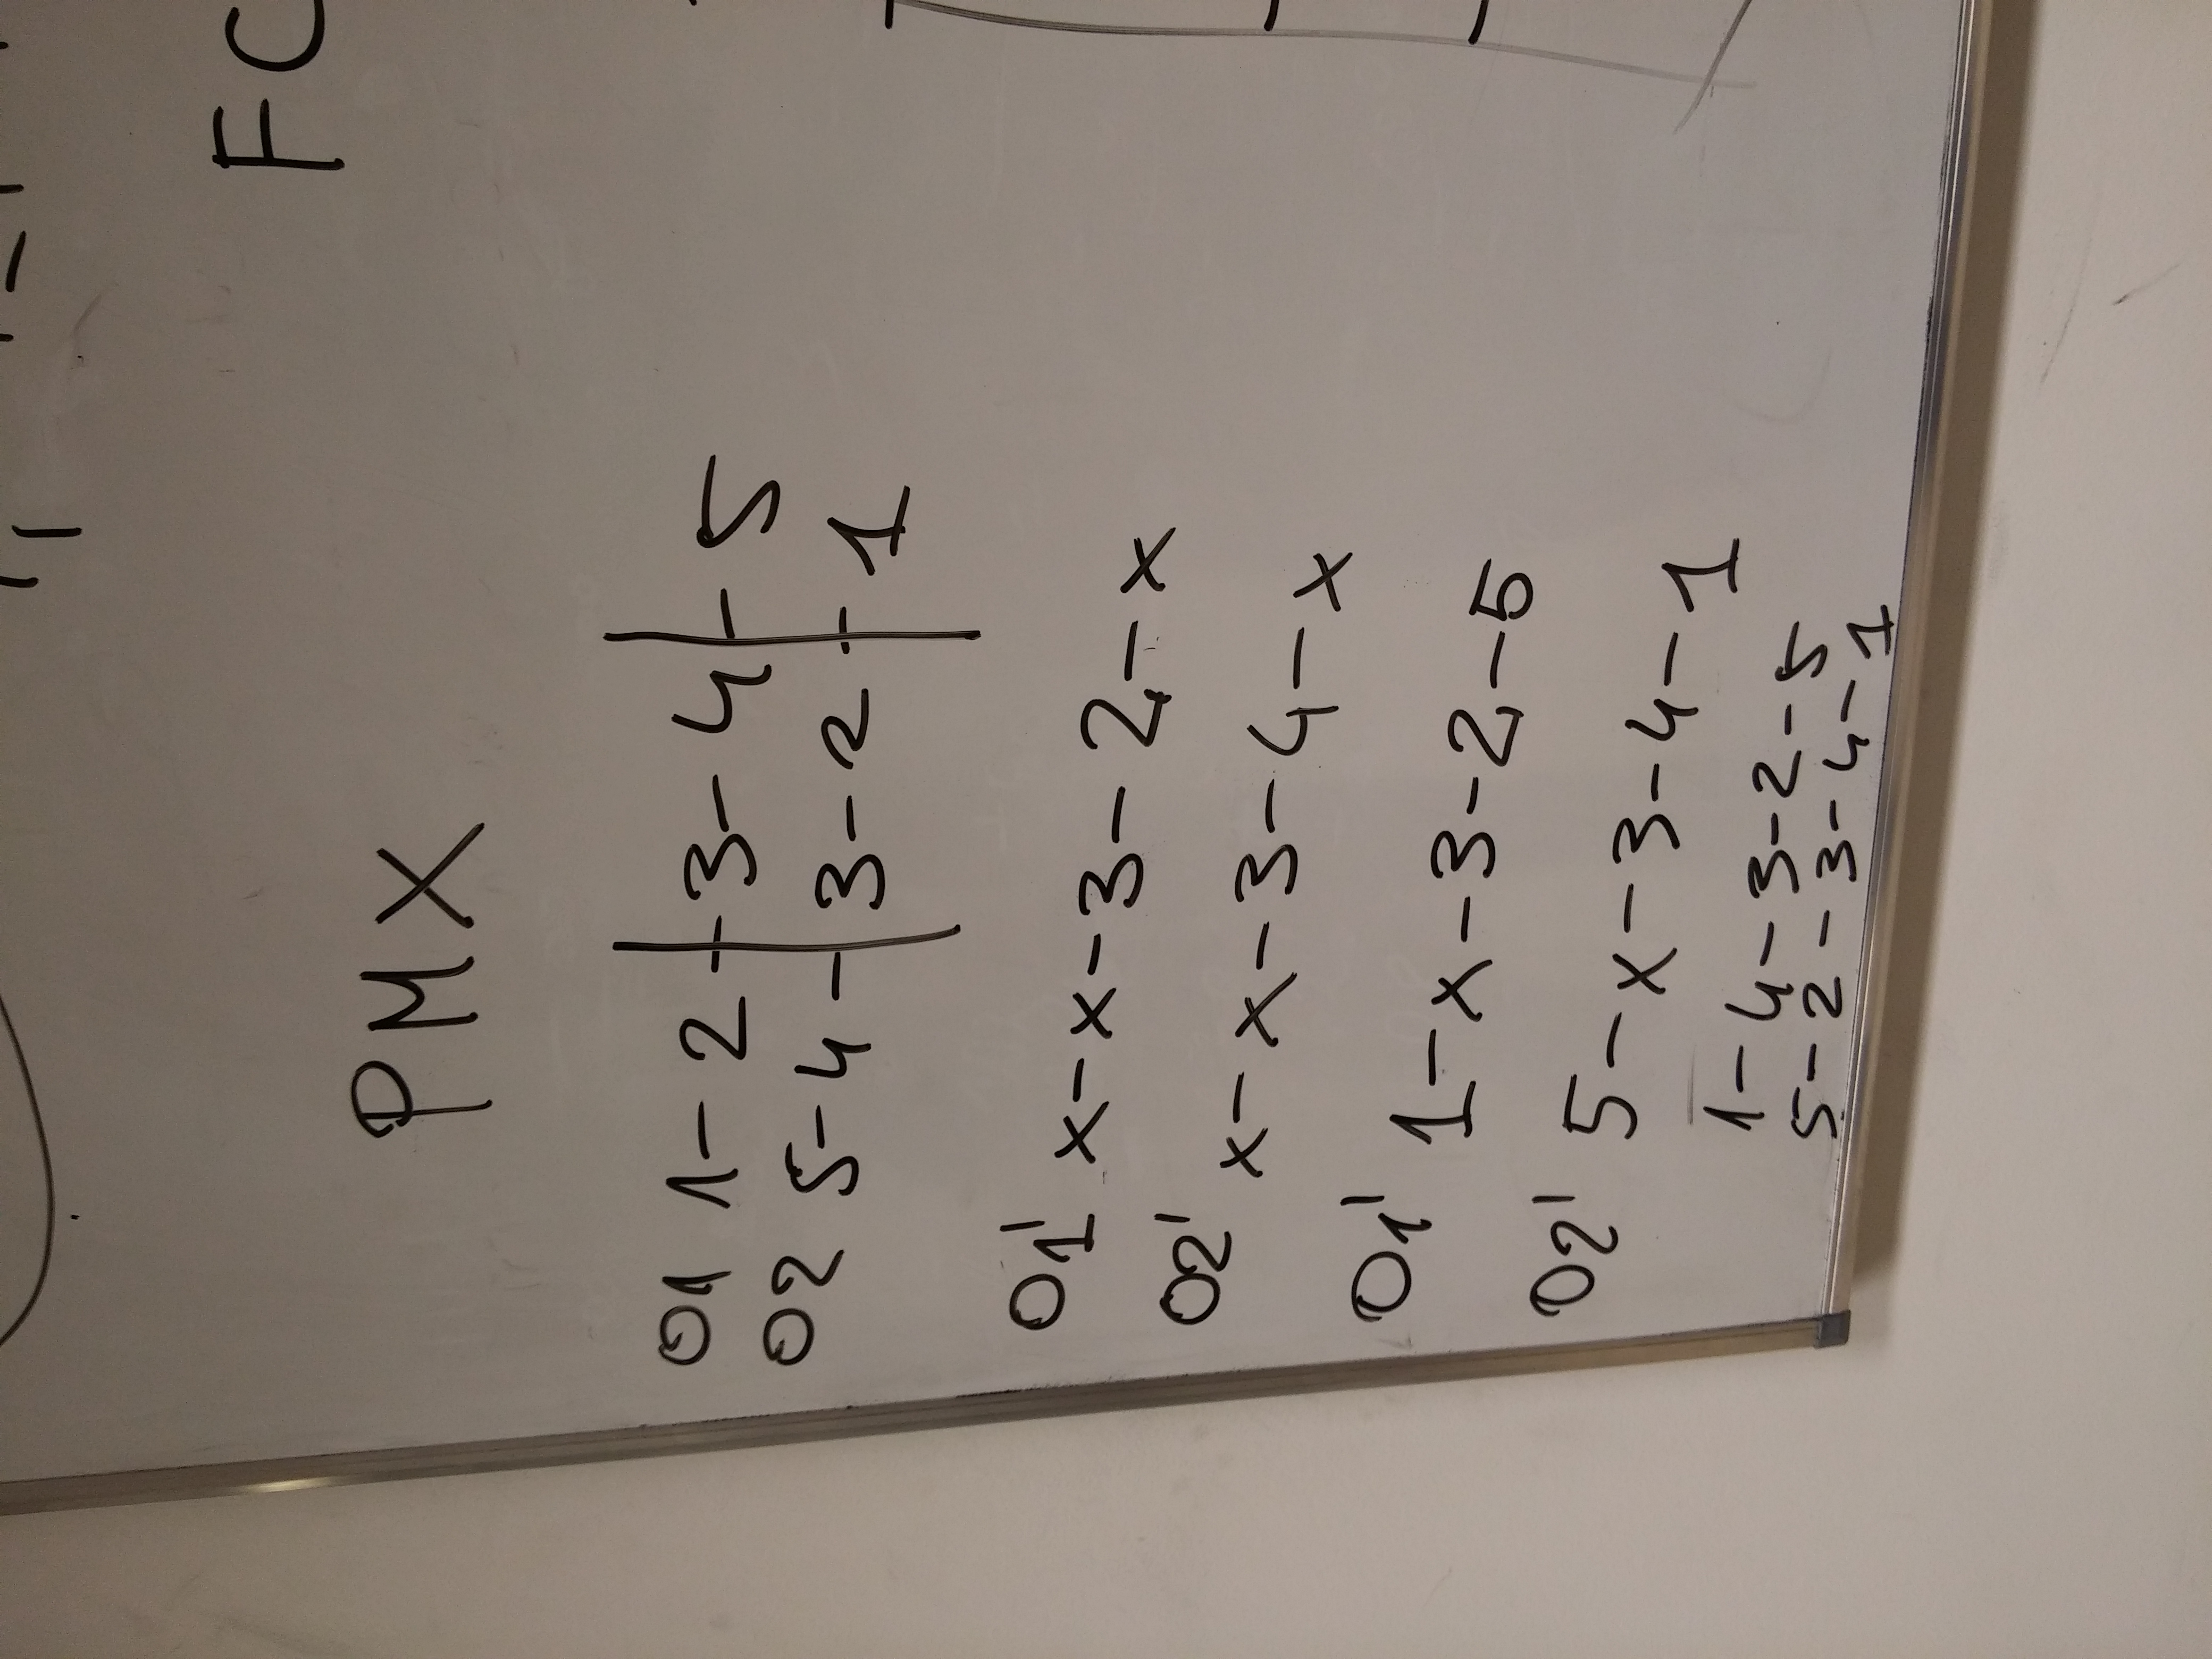 FC
PMX
O1 1-2-|3-4|-5
O2 5-4-|3-2|-1
O1' x-x-3-2-x
O2' x-x-3-4-x
O1' 1-x-3-2-5
O2' 5-x-3-4-1
1-4-3-2-5
5-2-3-4-1